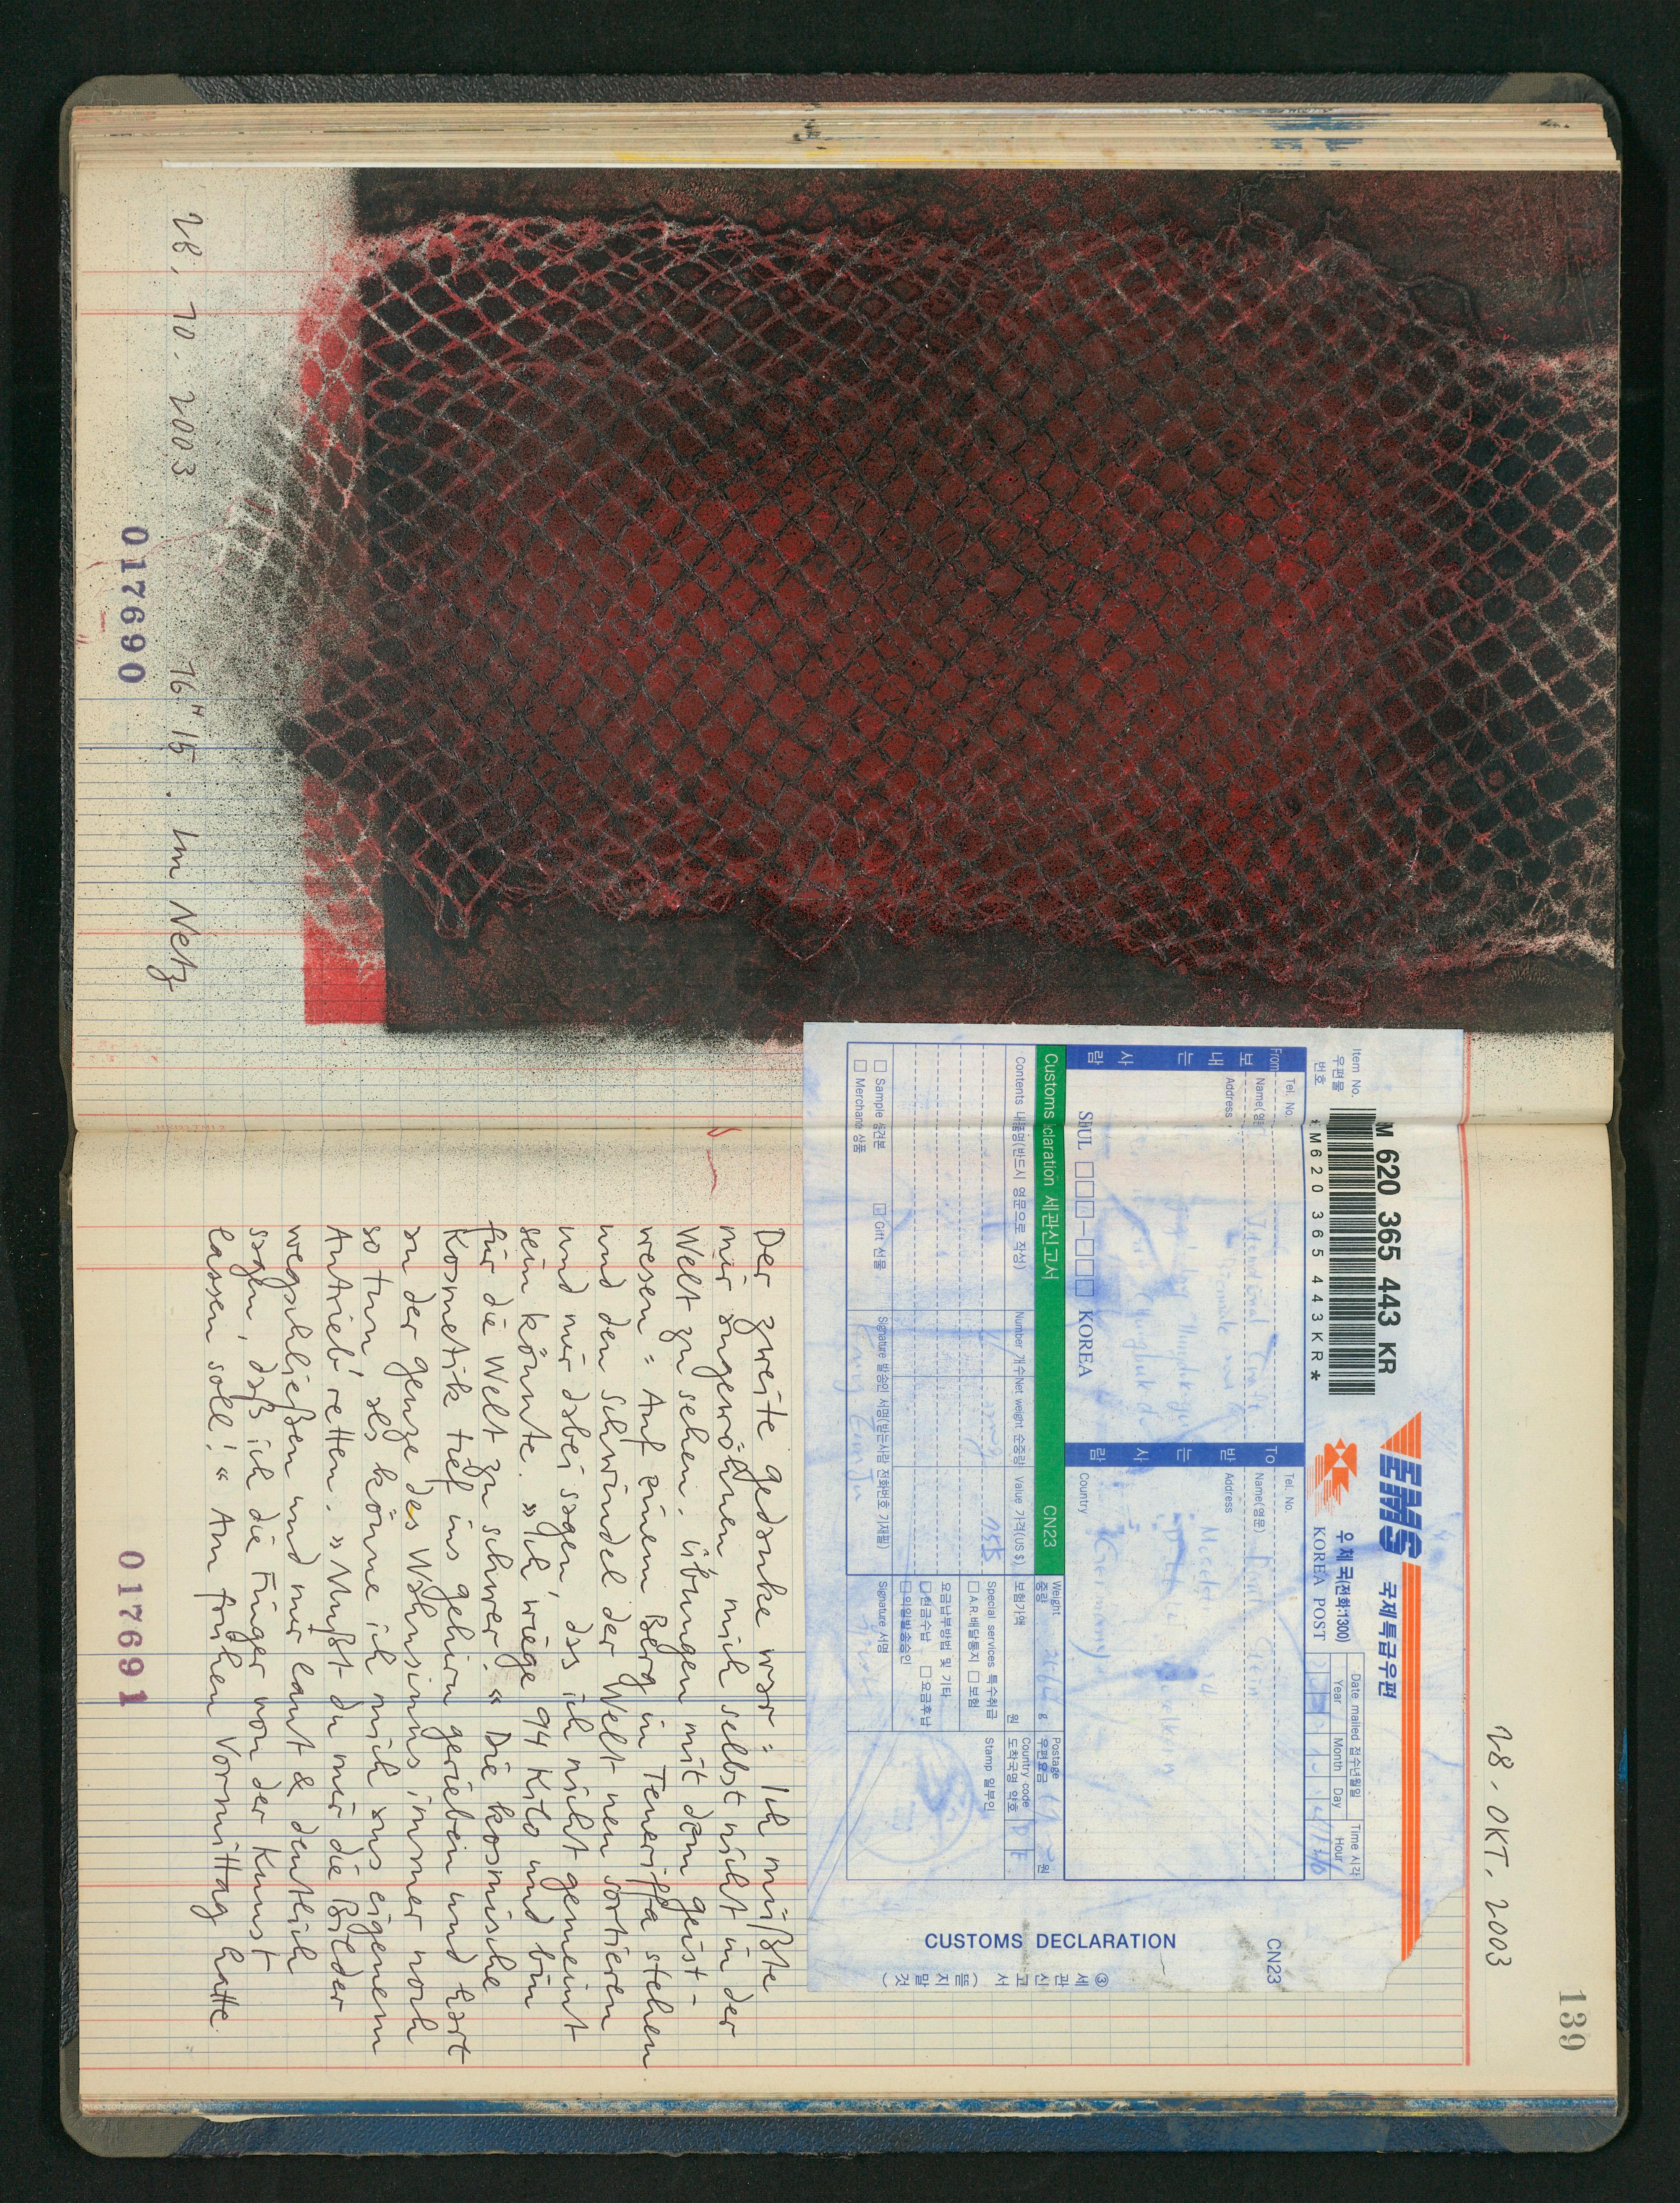 28. 10. 2003 16H15. Im Netz
017690
139
28. OKT. 2003
EMS 국제특급우편
Item No.
우편물
번호
M 620 365 443 KR
*M620365443KR*
우체국(전화:1300)
KOREA POST
Date mailed 접수년월일
Time 시각
Year
Month
Day
Hour
From
보내는 사람
Tel. No.
Name(영문)
Address
KOREA
To
받는 사람
Tel. No.
Name(영문)
Address
Germany
Country
Customs 세관신고서
CN23
Contents 내품명(반드시 영문으로 작성)
Number 개수
Net weight 순중량
Value 가격(US $)
Weight
중량
g
보험가액
원
Postage
우편요금
원
Country code
도착국명 약호
Special services 특수취급
A.R.배달통지
보험
Stamp 일부인
요금납부방법 및 기타
현금수납
요금후납
Sample 견본
Gift 선물
상품
Signature 발송인 서명(받는사람 전화번호 기재필)
Signature 서명
CUSTOMS DECLARATION
CN23
③ 세관신고서 (뜯지말것)
Der zweite Gedanke war: Ich müßte
mir angewöhnen, mich selbst nicht in der
Welt zu sehen. Übungen mit dem geist-
wesen: Auf einem Berg in Teneriffa stehen
und den Schwindel der Welt neu sortieren
und mir dabei sagen, das ich nicht gemeint
sein könnte. »Ich wiege 94 Kilo und bin
für die Welt zu schwer.« Die kosmische
Kosmetik tief ins Gehirn gerieben und hart
an der Genze des Wahnsinns immer noch
so tun, als könne ich mich aus eigenem
Antrieb retten. »Mußt du mir die Bilder
wegschließen und mir laut & deutlich
sagen, daß ich die Finger von der Kunst
lassen soll!« Am frühen Vormittag hatte
017691